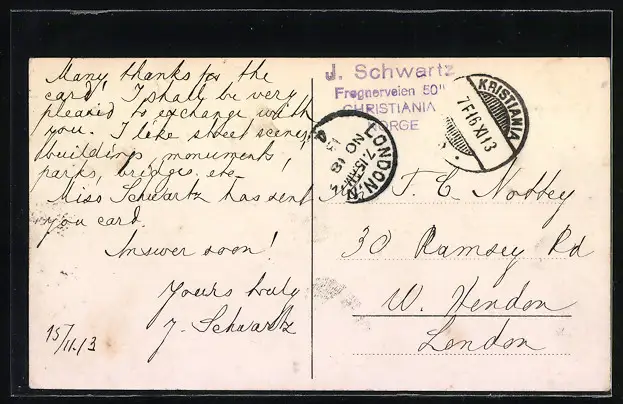 Many thanks for the
card, I shall be very
pleased to exchange with
you. I like street scenes,
buildings, monuments,
parks, bridges etc
Miss Schwartz has sent
you card.
Answer soon!
Yours truly
J. Schwartz
15/11.13
J. Schwartz
Frognerveien 50"
CHRISTIANIA
NORGE
KRISTIANIA
7F16XI13
LONDON
7.15AM
NO 18
T. E. Nobbey
30 Ramsey Rd
W. Hendon
London